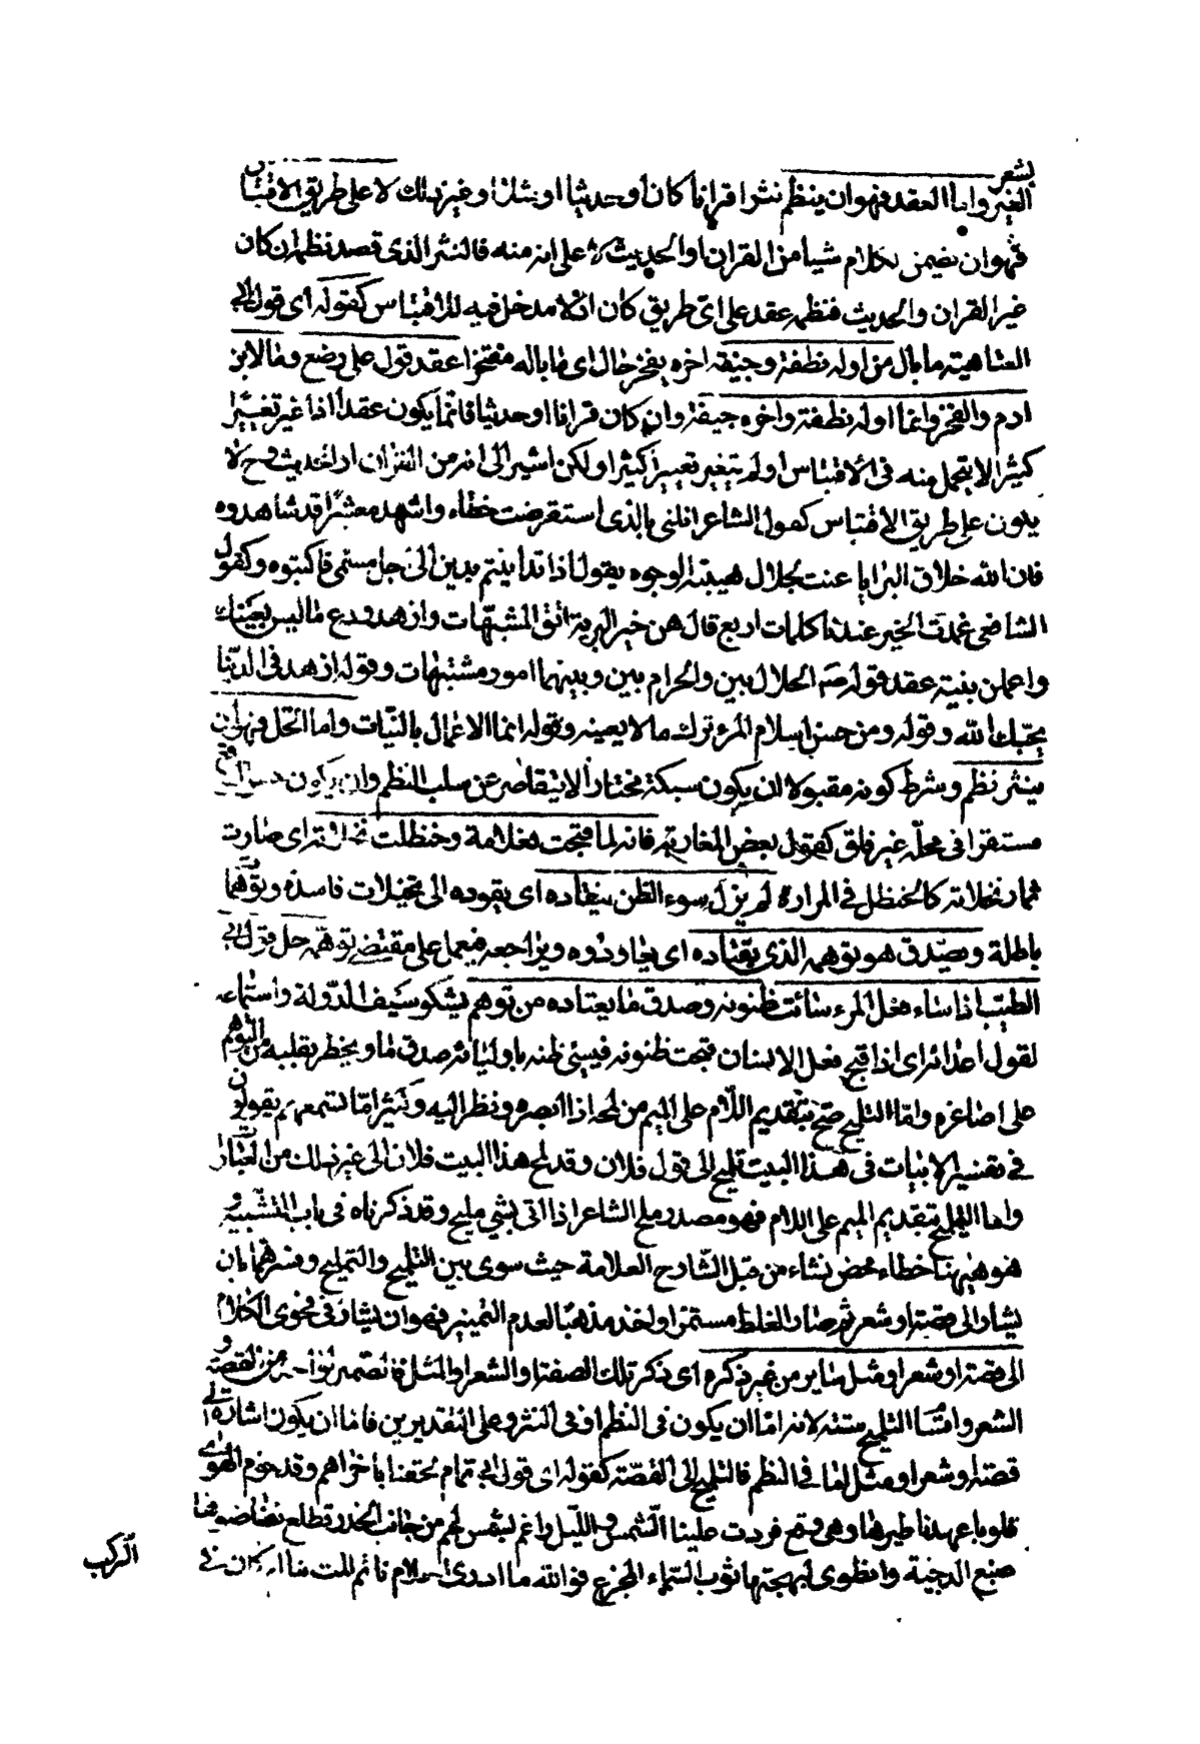 بشعر
الغير واما العقد فهو ان ينظم نثر اقرانا كان او حديثا او مثلا او غير ذلك لا على طريق الاقتباس
فهو ان يضمن الكلام شيا من القران او الحديث لا على انه منه فالنثر الذى قصد نظمه ان كان
غير القران والحديث فنظمه عقد على اى طريق كان اذ لا مدخل فيه للاقتباس كقوله اى قول ابى
العتاهية ما بال من اوله نطفة وجيفة اخره يفخر حال اى ما باله مفتخرا عقد قول على رضع وما لابن
ادم والفخر وانما اوله نطفة واخره جيفة وان كان قرانا او حديثا فانما يكون عقدا اذا غير تغييرا
كثيرا لا يتحمل منه فى الاقتباس او لم يتغير تغييرا كثيرا ولكن اشير الى انه من القران او الحديث وح لا
يكون على طريق الاقتباس كقول الشاعر انلنى بالذى استقرضت خطاء واشهد معشرا قد شاهدوه
فان الله خلاق البرايا عنت لجلال هيبته الوجوه يقول اذا تداينتم بدين الى اجل مسمى فاكتبوه وكقول
الشافعى عمدة الخير عندنا كلمات اربع قال هن خير البرية اتق المشبهات وازهد ودع ما ليس يعنيك
واعملن بنية عقد قوله صم الحلال بين والحرام بين وبينهما امور مشتبهات وقوله ازهد فى الدنيا
يحبك الله وقوله ومن حسن اسلام المرء تركه ما لا يعينه وقوله انما الاعمال بالنيات واما الحل فهو ان
ينثر نظم وشرط كونه مقبولا ان يكون سبكه مختارا لا يتقاصر عن سلب النظم وان يكون حسن الموقع
مستقرا فى محله غير قلق كقول بعض المغاربة فانه لما قبحت فعلاته وحنظلت نخلاته اى صارت
ثمار نخلاته كالحنظل فى المرارة لم يزل سوء الظن يقتاده اى يقوده الى تخيلات فاسدة وتوهما
باطلة ويصدق هو توهمه الذى يعتاده اى يعاوده ويراجعه فيعمل على مقتضى توهمه حل قول ابى
الطيب اذا ساء فعل المرء سائت ظنونه وصدق ما يعتاده من توهم يشكو سيف الدولة واستماعه
لقول اعدائه اى اذا قبح فعل الانسان قبحت ظنونه فيسئ ظنه باوليائه صدق ما يخطر بقلبه من التوهم
على اصاغره واما التلميح صح بتقديم اللام على الميم من لمحه اذا ابصره ونظر اليه وكثيرا ما تسمعهم يقولون
فى تفسير الابيات فى هذا البيت تلميح الى قول فلان وقد لمح هذا البيت فلان الى غير ذلك من العبارات
واما التمليح بتقديم الميم على اللام فهو مصدر ملح الشاعر اذا اتى بشئ مليح وقد ذكرناه فى باب التشبيه و
هو هيهنا خطاء محض نشاء من قبل الشارح العلامة حيث سوى بين التلميح والتمليح وفسرهما بان
يشار الى قصة او شعر ثم صار الغلط مستمرا واخذ مذهبا لعدم التمييز فهو ان يشار فى فحوى الكلام
الى قصة او شعر او مثل ساير من غير ذكره اى ذكر تلك القصة او الشعر او المثل فالضمير لواحد من القصة و
الشعر واقسام التلميح ستة لانه اما ان يكون فى النظم او فى النثر وعلى التقديرين فاما ان يكون اشارة الى
قصة او شعر او مثل اما فى النظم فالتلميح الى القصة كقوله اى قول ابى تمام لحقنا باخراهم وقد حوم الهوى
قلوبا عهدنا طيرها وهى وقع فردت علينا الشمس والليل راغم بشمس لهم من جانب الخدر تطلع نضا ضوءها
صبغ الدجنة وانطوى لبهجتها ثوب السماء المجزع فوالله ما ادرى احلام نائم المت بنا ام كان فى
الركب